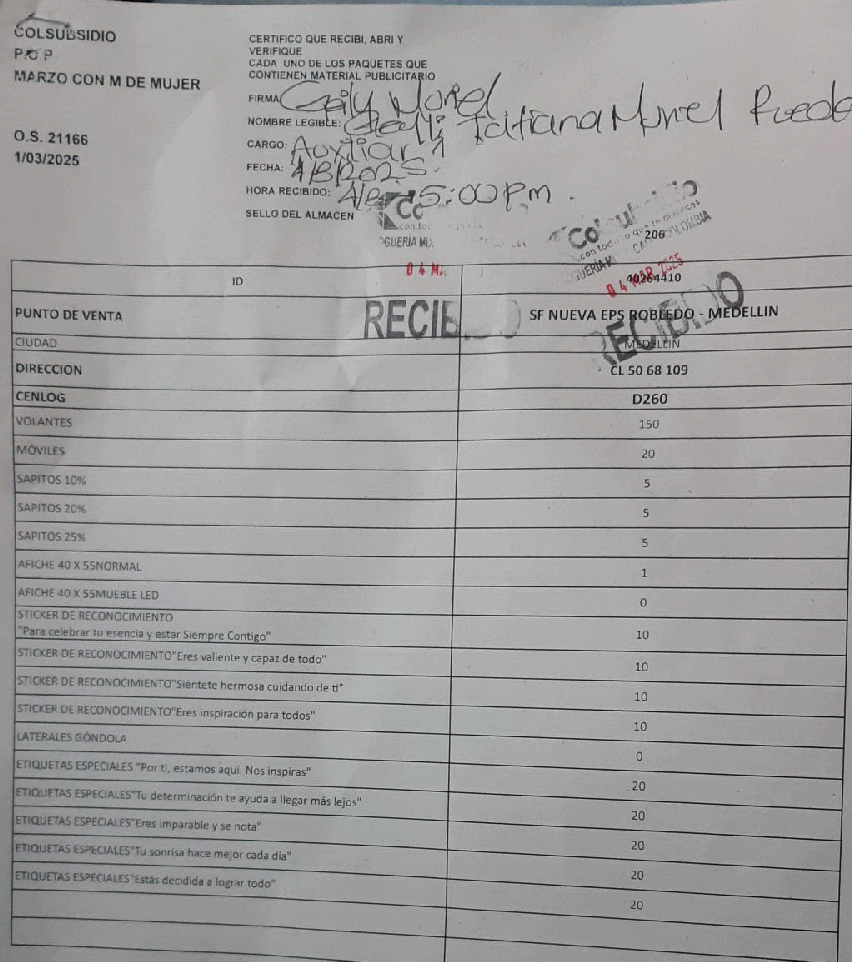 COLSUBSIDIO
P.O.P
MARZO CON M DE MUJER
O.S. 21166
1/03/2025
CERTIFICO QUE RECIBI, ABRI Y
VERIFIQUE
CADA UNO DE LOS PAQUETES QUE
CONTIENEN MATERIAL PUBLICITARIO
FIRMA
NOMBRE LEGIBLE: Tatiana
CARGO: Auxiliar 1
FECHA:
HORA RECIBIDO: 5:00 pm.
SELLO DEL ALMACEN
Colsubsidio
206
04 MAR 2025
ID 90264410
RECIBIDO
RECIBIDO
PUNTO DE VENTA SF NUEVA EPS ROBLEDO - MEDELLIN
CIUDAD MEDELLIN
DIRECCION CL 50 68 109
CENLOG D260
VOLANTES 150
MÓVILES 20
SAPITOS 10% 5
SAPITOS 20% 5
SAPITOS 25% 5
AFICHE 40 X 55NORMAL 1
AFICHE 40 X 55MUEBLE LED 0
STICKER DE RECONOCIMIENTO
"Para celebrar tu esencia y estar Siempre Contigo" 10
STICKER DE RECONOCIMIENTO"Eres valiente y capaz de todo" 10
STICKER DE RECONOCIMIENTO"Siéntete hermosa cuidando de ti" 10
STICKER DE RECONOCIMIENTO"Eres inspiración para todos" 10
LATERALES GÓNDOLA 0
ETIQUETAS ESPECIALES "Por ti, estamos aquí. Nos inspiras" 20
ETIQUETAS ESPECIALES"Tu determinación te ayuda a llegar más lejos" 20
ETIQUETAS ESPECIALES"Eres imparable y se nota" 20
ETIQUETAS ESPECIALES"Tu sonrisa hace mejor cada día" 20
ETIQUETAS ESPECIALES"Estás decidida a lograr todo" 20